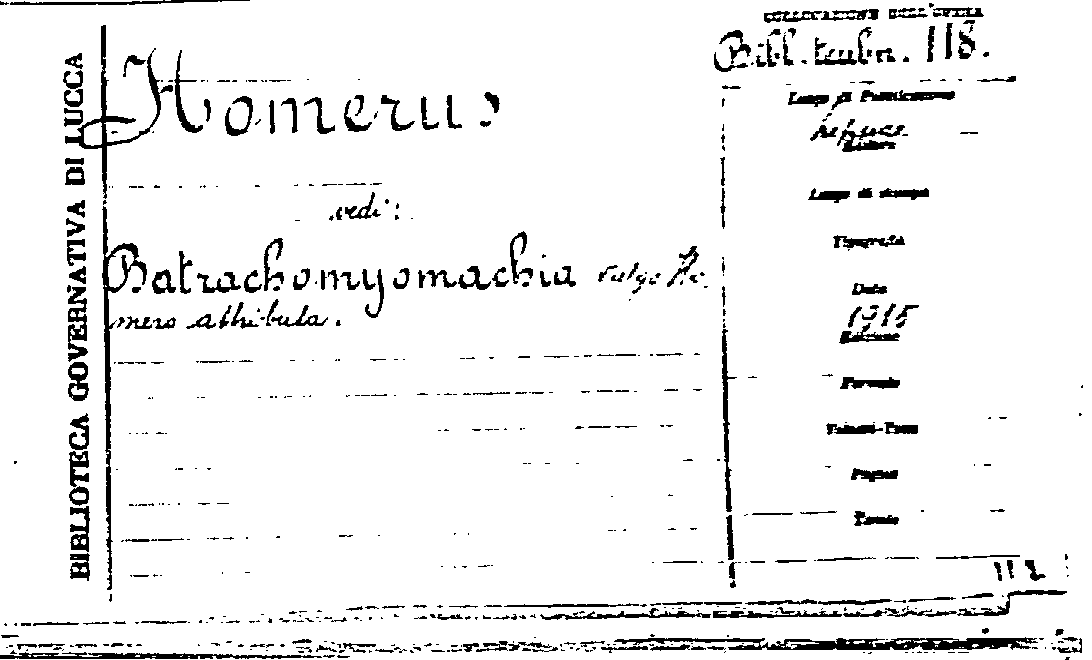 BIBLIOTECA GOVERNATIVA DI LUCCA
COLLOCAZIONE DELL'OPERA
Bibl. teubn. 118.
Homerus
vedi:
Batrachomyomachia vulgo Ho-
mero attributa.
Luogo di Pubblicazione
Lipsiae
Editore
Luogo di stampa
Tipografia
Data
1915
Edizione
Formato
Volumi-Tomi
Pagine
Tavole